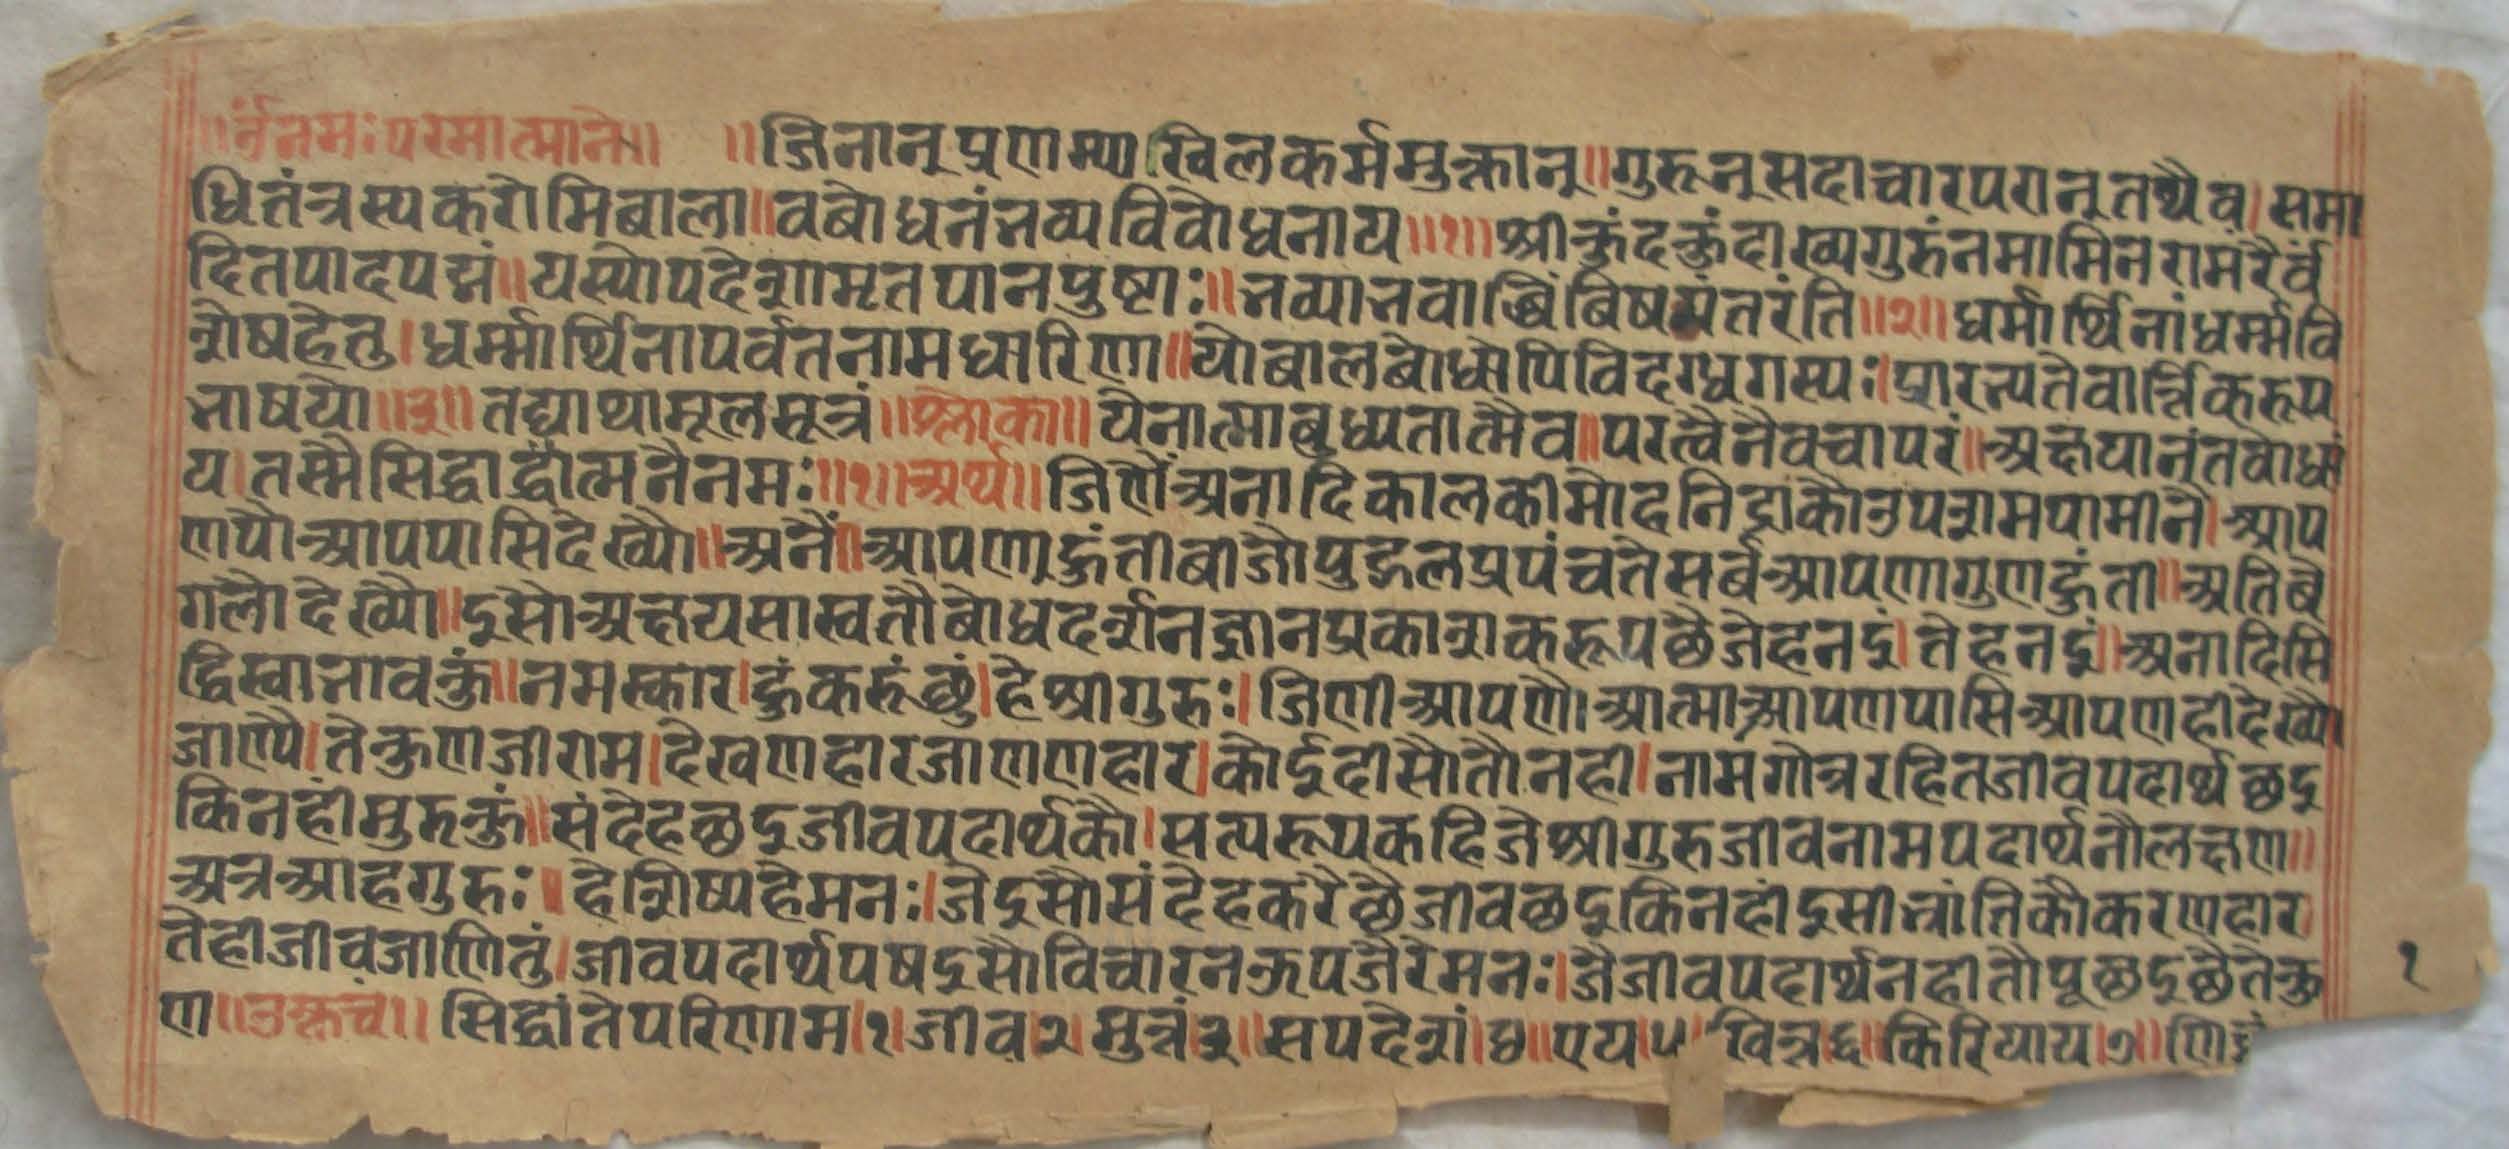 ॥ र्नं नमः परमात्माने॥ ॥जिनान् प्रणम्याखिलकर्ममुक्तान्॥गुरून् सदाचारपरान् तथैव।समा
धितंत्रस्य करोमि बाला॥वबोधनं भव्यविबोधनाय॥१॥श्रीकुंदकुंदाख्यगुरुं नमामि नरामरैर्वं
दितपादपद्मं॥यस्योपदेशामृतपानपुष्टाः॥भव्या भवाब्धिं बिषमं तरंति॥२॥धर्मार्थिनां धर्म्मवि
शेषहेतु।धर्म्मार्थिना पर्वतनामधारिणा॥यो बालबोधोपि विदग्धगस्यः।प्रारभ्यते वार्त्तिकरूप
भाषयो॥३॥तद्याथा मूलसूत्रं॥श्लोका॥येनात्मा बुध्यतात्मैव॥परत्वैनैव चापरं॥अक्षयानंतबोधां
य।तस्मै सिद्धाद्धात्मनै नमः॥१॥अर्थ॥जिणें अनादिकालकी मोहनिद्राकौ उपशम पामीनै।आप
णपौ आप पासि देख्यौ॥अनें॥आपणा हुंती बीजो पुद्गलप्रपंच ते सर्व आपणा गुण हुंती॥अति बे
गलौ देख्यौ॥इसो अक्षय सास्वतौ बोध दर्शन ज्ञान प्रकाशक रूप छै जेहनइं।तेहनइं॥अनादि सि
द्धि स्वाभावकुं॥नमस्कार।हुं करूं छुं।हे श्रीगुरुः।जिणी आपणौ आत्मा आपण पासि आपण ही देख्यौ
जाण्यै।ते कुण जीराम।देखणहार जाणणहार।कोई दीसौ तौ नही।नामगोत्र रहित जीवपदार्थ छइ
कि नहीं मुझकुं॥संदेह छइ जीवपदार्थकौ।सत्यरूप कहिजे श्रीगुरु जीवनाम पदार्थनौ लक्षण॥
अत्र आह गुरुः॥हे शिष्य हे मनः।जे इसौ संदेह करै छै जीव छइ कि नहीं इसी भ्रांतिकौ करणहार
ते ही जीव जाणि तुं।जीवपदार्थ पषइ सौ विचार न ऊपजै रे मनः।जै जीवपदार्थ नही तौ पूछइ छै ते कु
ण॥उक्तंच॥सिद्धांते परिणाम।१।जीव।२।मुत्तं।३॥सपदेशां।४॥एय।५। खित्त।६॥किरियाय।७॥णि
१